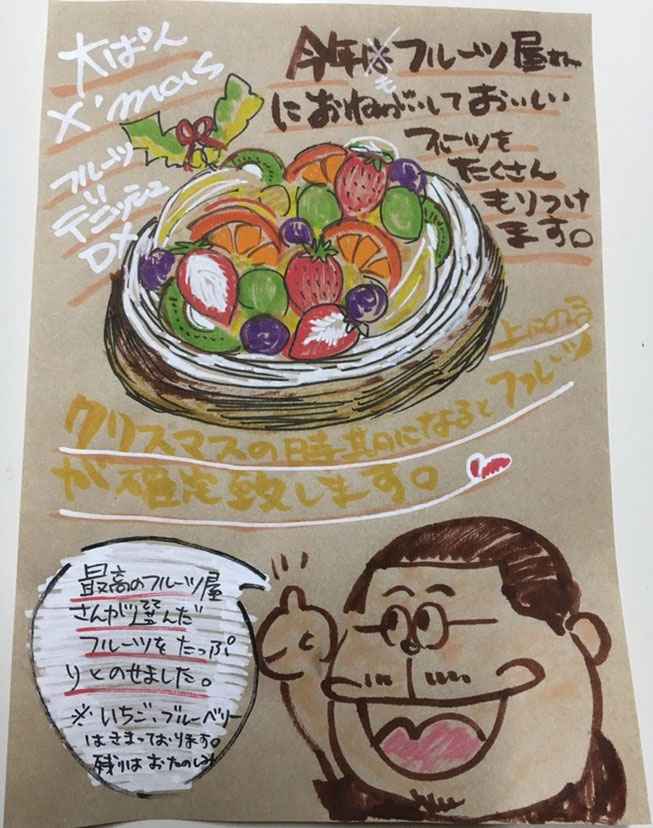 大ぱん
X'mas
フルーツ
デニッシュ
DX
今年はフルーツ屋さん
におねがいしておいしい
フルーツを
たくさん
もりつけ
ます。
上にのる
クリスマスの時期になるとフルーツ
が確定致します。
最高のフルーツ屋
さんが選んだ
フルーツをたっぷ
りとのせました。
※いちご、ブルーベリー
はきまっております。
残りはおたのしみ